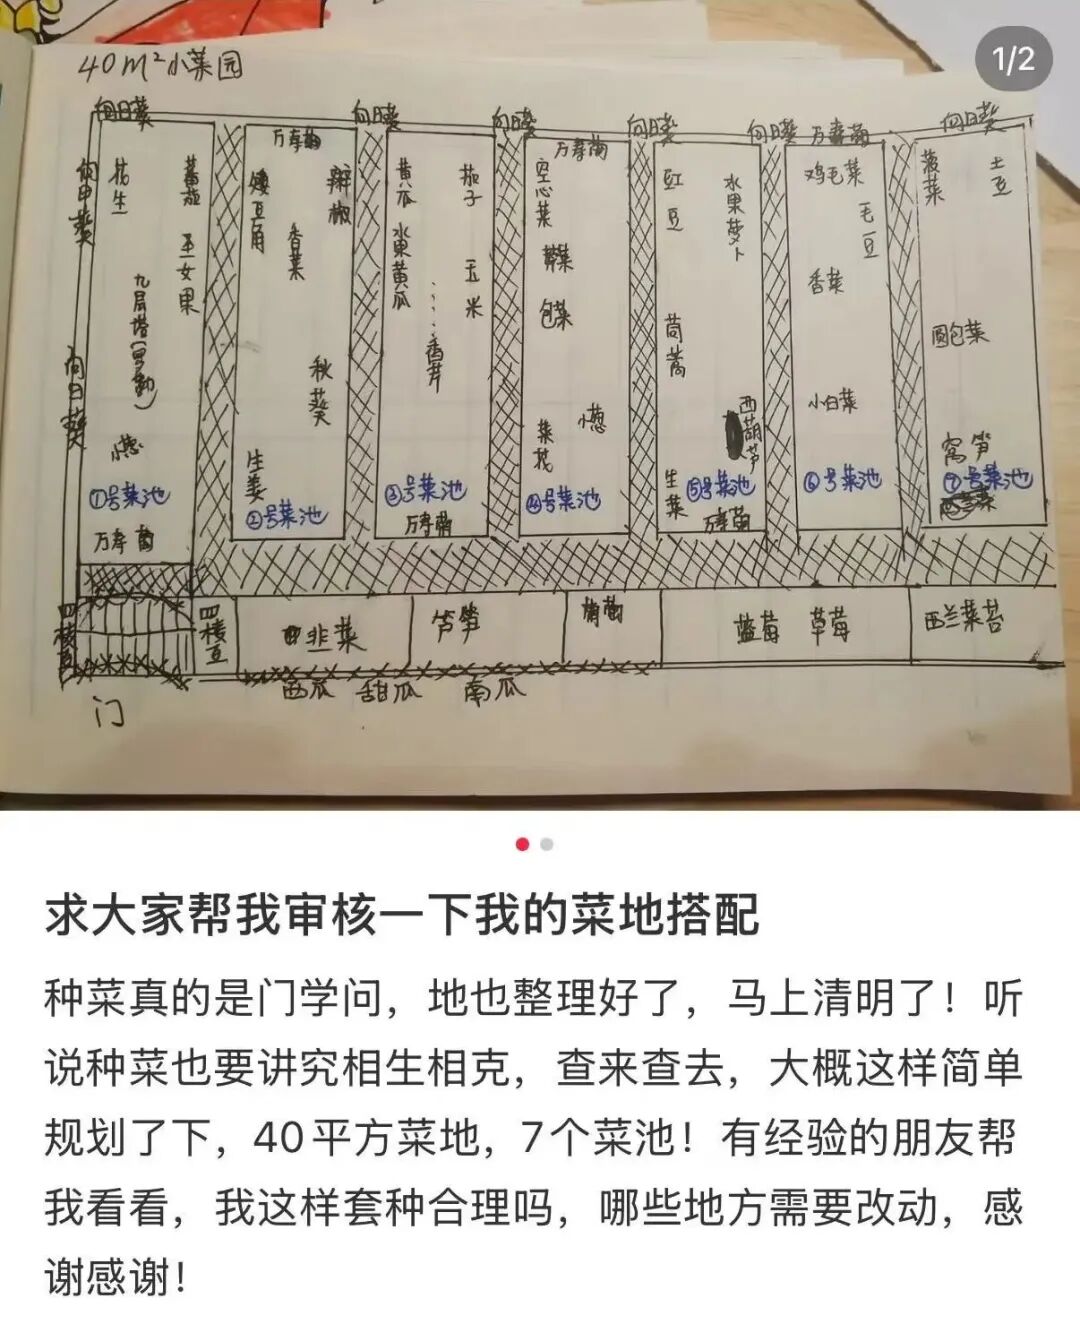 1/2
40m²小菜园
向日葵 向日葵 向日葵 向日葵 向日葵 万寿菊 向日葵
向日葵
向日葵
花生
番茄
玉女果
九层塔(罗勒)
小葱
①号菜池
万寿菊
万寿菊
矮豆角
辣椒
香菜
秋葵
生姜
②号菜池
黄瓜
水果黄瓜
茄子
玉米
……香芹
③号菜池
万寿菊
万寿菊
空心菜
包菜
菜花
小葱
④号菜池
豇豆
水果萝卜
茼蒿
西葫芦
生菜
⑤号菜池
万寿菊
鸡毛菜
毛豆
香菜
小白菜
⑥号菜池
菠菜
土豆
圆包菜
窝笋
⑦号菜池
四棱豆
四棱豆
韭菜
芦笋
蓝莓 草莓
西兰菜苔
西瓜 甜瓜 南瓜
门
求大家帮我审核一下我的菜地搭配
种菜真的是门学问，地也整理好了，马上清明了！听
说种菜也要讲究相生相克，查来查去，大概这样简单
规划了下，40平方菜地，7个菜池！有经验的朋友帮
我看看，我这样套种合理吗，哪些地方需要改动，感
谢感谢！